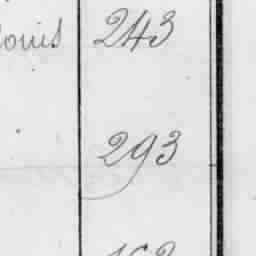 ouis 243
293